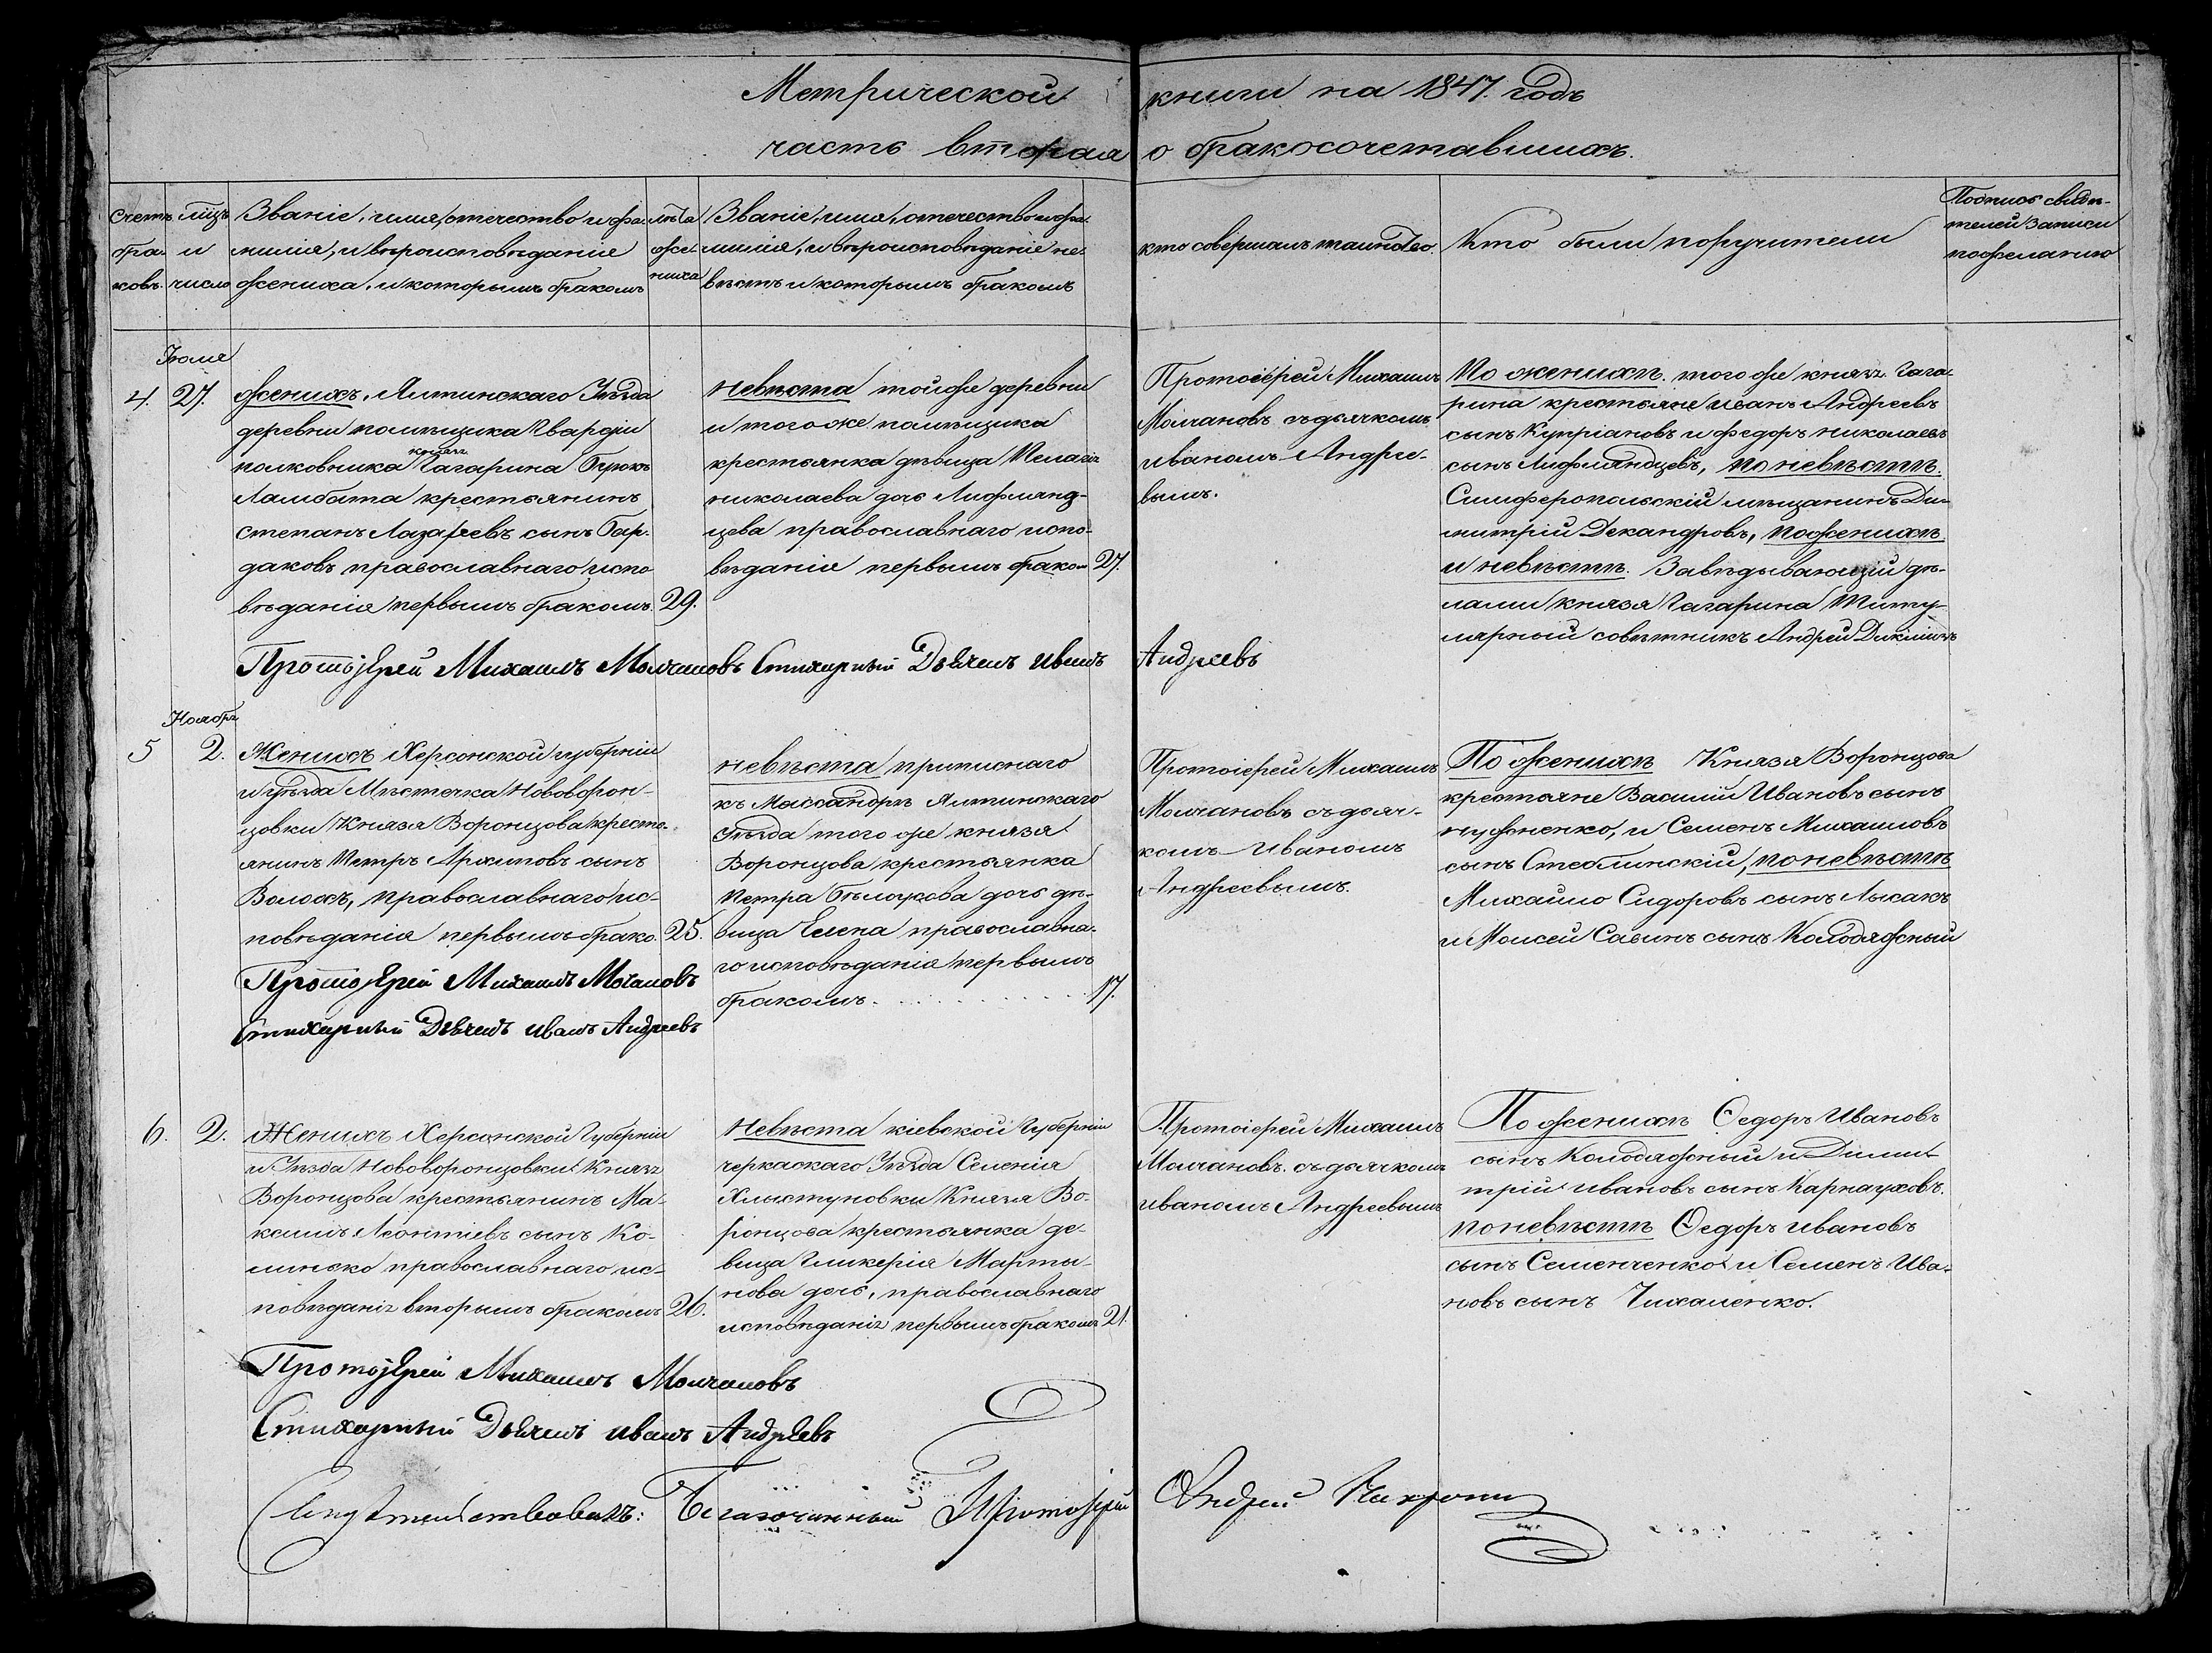 Метрической книги на 1847. годъ
часть вторая о бракосочетавшихся.
Счетъ бра- ковъ.
мѣсяцъ и число
Званіе, имя, отечество и фа-
милія, и вѣроисповѣданіе
жениха, и которымъ бракомъ
лѣта
же-
ниха
Званіе, имя, отечество и фа-
милія, и вѣроисповѣданіе не-
вѣсты и которымъ бракомъ
кто совершалъ таинство.
Кто были поручители
Подпись свидѣ-
телей записи
по желанію
Іюля
4. 27.
женихъ, Ялтинскаго Уѣзда
деревни помѣщика Гвардіи
князя
полковника Гагарина Біюкъ
Ламбата крестьянинъ
степанъ Лазаревъ сынъ Бар-
даковъ православнаго испо-
вѣданія первымъ бракомъ. 29.
невѣста тойже деревни
и тогоже помѣщика
крестьянка дѣвица Пелагія
николаева дочь Лифлянд-
цева православнаго испо-
вѣданія первымъ бракомъ 27.
Протоіерей Михаилъ
Молчановъ съ дьячкомъ
иваномъ Андрее-
вымъ.
По женихѣ. того же князя Гага-
рина крестьяне иванъ Андреевъ
сынъ Купріановъ и федоръ николаевъ
сынъ Лифляндцевъ, по невѣстѣ.
Симферопольскій мѣщанинъ Ди-
митрій Декандровъ, по женихѣ
и невѣстѣ. Завѣдывающій дѣ-
лами князя Гагарина титу-
лярный совѣтникъ Андрей
Протоіерей Михаилъ Молчановъ Стихарный Дьячекъ иванъ Андреевъ
Ноября
5 2.
Женихъ Херсонской губерніи
и уѣзда Мѣстечка Нововорон-
цовки Князя Воронцова кресть-
янинъ Петръ Архиповъ сынъ
Волохъ, православнаго ис-
повѣданія первымъ брако. 25.
невѣста приписнаго
къ Массандрѣ Ялтинскаго
Уѣзда того же князя
Воронцова крестьянка
Петра дочь дѣ-
вица Елена православна-
го исповѣданія первымъ
бракомъ. 17.
Протоіерей Михаилъ
Молчановъ съ дьяч-
комъ Иваномъ
Андреевымъ.
По женихѣ Князя Воронцова
крестьяне Василій Ивановъ сынъ
нужненко, и Семенъ Михаиловъ
сынъ Стеблинскій, по невѣстѣ
Михайло Сидоровъ сынъ Лысакъ
и Моисей Савинъ сынъ Колодяжный
Протоіерей Михаилъ Молчановъ
Стихарный Дьячекъ иванъ Андреевъ
6. 2.
Женихъ Херсонской Губерніи
и Уѣзда Нововоронцовки Князя
Воронцова крестьянинъ Ма-
ксимъ Леонтіевъ сынъ Ко-
линско православнаго ис-
повѣданія вторымъ бракомъ 26.
Невѣста кіевской Губерніи
черкаскаго Уѣзда Селенія
Хлыстуновки Князя Во-
ронцова крестьянка де-
вица Гликерія Марты-
нова дочь, православнаго
исповѣданія первымъ бракомъ 21.
Протоіерей Михаилъ
Молчановъ. съ дьячкомъ
иваномъ Андреевымъ
По женихѣ Ѳедоръ Ивановъ
сынъ Колодяжный и Дими-
трій ивановъ сынъ Карнауховъ.
по невѣстѣ Ѳедоръ ивановъ
сынъ Семенченко и Семенъ Ива-
новъ сынъ Чихаленко.
Протоіерей Михаилъ Молчановъ
Стихарный Дьячекъ иванъ Андреевъ
Свидѣтельствовалъ: Благочинный Протоіерей Андрей